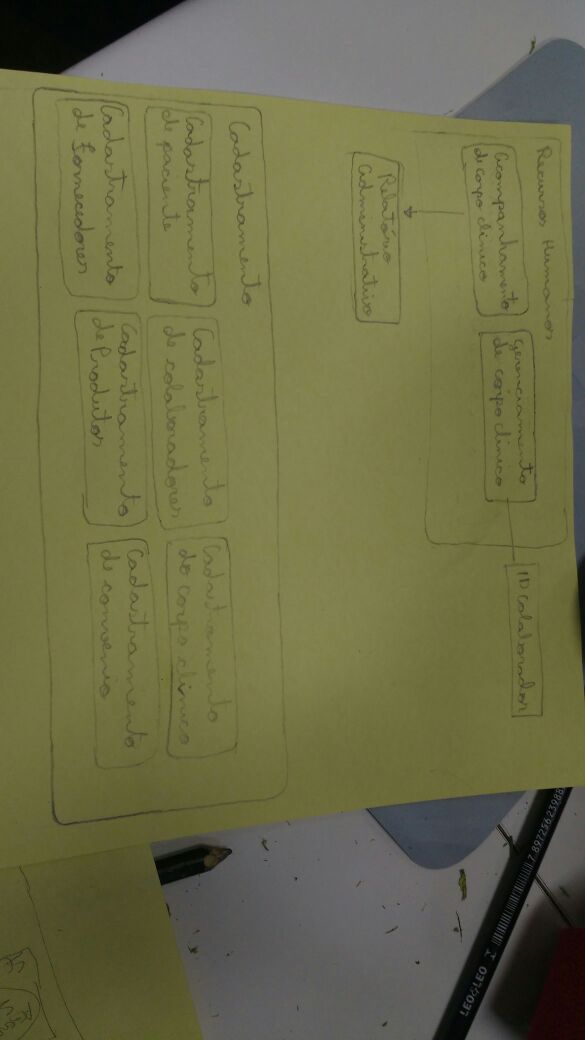 Recursos Humanos
Acompanhamento
de corpo clinico
Gerenciamento
de corpo clinico
ID colaborador
Relatório
administrativo
Cadastramento
Cadastramento
de paciente
Cadastramento
de colaboradores
Cadastramento
do corpo clinico
Cadastramento
de fornecedores
Cadastramento
de Produtos
Cadastramento
de convenio
LEO&LEO